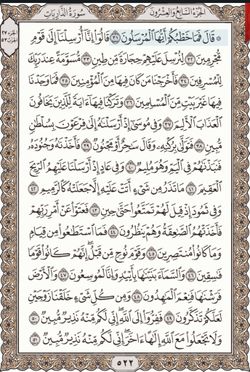 الجزء السابع والعشرون سورة الذاريات
۞ قَالَ فَمَا خَطْبُكُمْ أَيُّهَا الْمُرْسَلُونَ ٣١ قَالُوا إِنَّا أُرْسِلْنَا إِلَى قَوْمٍ
مُّجْرِمِينَ ٣٢ لِنُرْسِلَ عَلَيْهِمْ حِجَارَةً مِّن طِينٍ ٣٣ مُّسَوَّمَةً عِندَ رَبِّكَ
لِلْمُسْرِفِينَ ٣٤ فَأَخْرَجْنَا مَن كَانَ فِيهَا مِنَ الْمُؤْمِنِينَ ٣٥ فَمَا وَجَدْنَا
فِيهَا غَيْرَ بَيْتٍ مِّنَ الْمُسْلِمِينَ ٣٦ وَتَرَكْنَا فِيهَا آيَةً لِّلَّذِينَ يَخَافُونَ
الْعَذَابَ الْأَلِيمَ ٣٧ وَفِي مُوسَى إِذْ أَرْسَلْنَاهُ إِلَى فِرْعَوْنَ بِسُلْطَانٍ
مُّبِينٍ ٣٨ فَتَوَلَّى بِرُكْنِهِ وَقَالَ سَاحِرٌ أَوْ مَجْنُونٌ ٣٩ فَأَخَذْنَاهُ وَجُنُودَهُ
فَنَبَذْنَاهُمْ فِي الْيَمِّ وَهُوَ مُلِيمٌ ٤٠ وَفِي عَادٍ إِذْ أَرْسَلْنَا عَلَيْهِمُ الرِّيحَ
الْعَقِيمَ ٤١ مَا تَذَرُ مِن شَيْءٍ أَتَتْ عَلَيْهِ إِلَّا جَعَلَتْهُ كَالرَّمِيمِ ٤٢
وَفِي ثَمُودَ إِذْ قِيلَ لَهُمْ تَمَتَّعُوا حَتَّى حِينٍ ٤٣ فَعَتَوْا عَنْ أَمْرِ رَبِّهِمْ
فَأَخَذَتْهُمُ الصَّاعِقَةُ وَهُمْ يَنظُرُونَ ٤٤ فَمَا اسْتَطَاعُوا مِن قِيَامٍ
وَمَا كَانُوا مُنتَصِرِينَ ٤٥ وَقَوْمَ نُوحٍ مِّن قَبْلُ إِنَّهُمْ كَانُوا قَوْمًا
فَاسِقِينَ ٤٦ وَالسَّمَاءَ بَنَيْنَاهَا بِأَيْيدٍ وَإِنَّا لَمُوسِعُونَ ٤٧ وَالْأَرْضَ
فَرَشْنَاهَا فَنِعْمَ الْمَاهِدُونَ ٤٨ وَمِن كُلِّ شَيْءٍ خَلَقْنَا زَوْجَيْنِ
لَعَلَّكُمْ تَذَكَّرُونَ ٤٩ فَفِرُّوا إِلَى اللَّهِ إِنِّي لَكُم مِّنْهُ نَذِيرٌ مُّبِينٌ ٥٠
وَلَا تَجْعَلُوا مَعَ اللَّهِ إِلَهًا آخَرَ إِنِّي لَكُم مِّنْهُ نَذِيرٌ مُّبِينٌ ٥١
٥٢٢